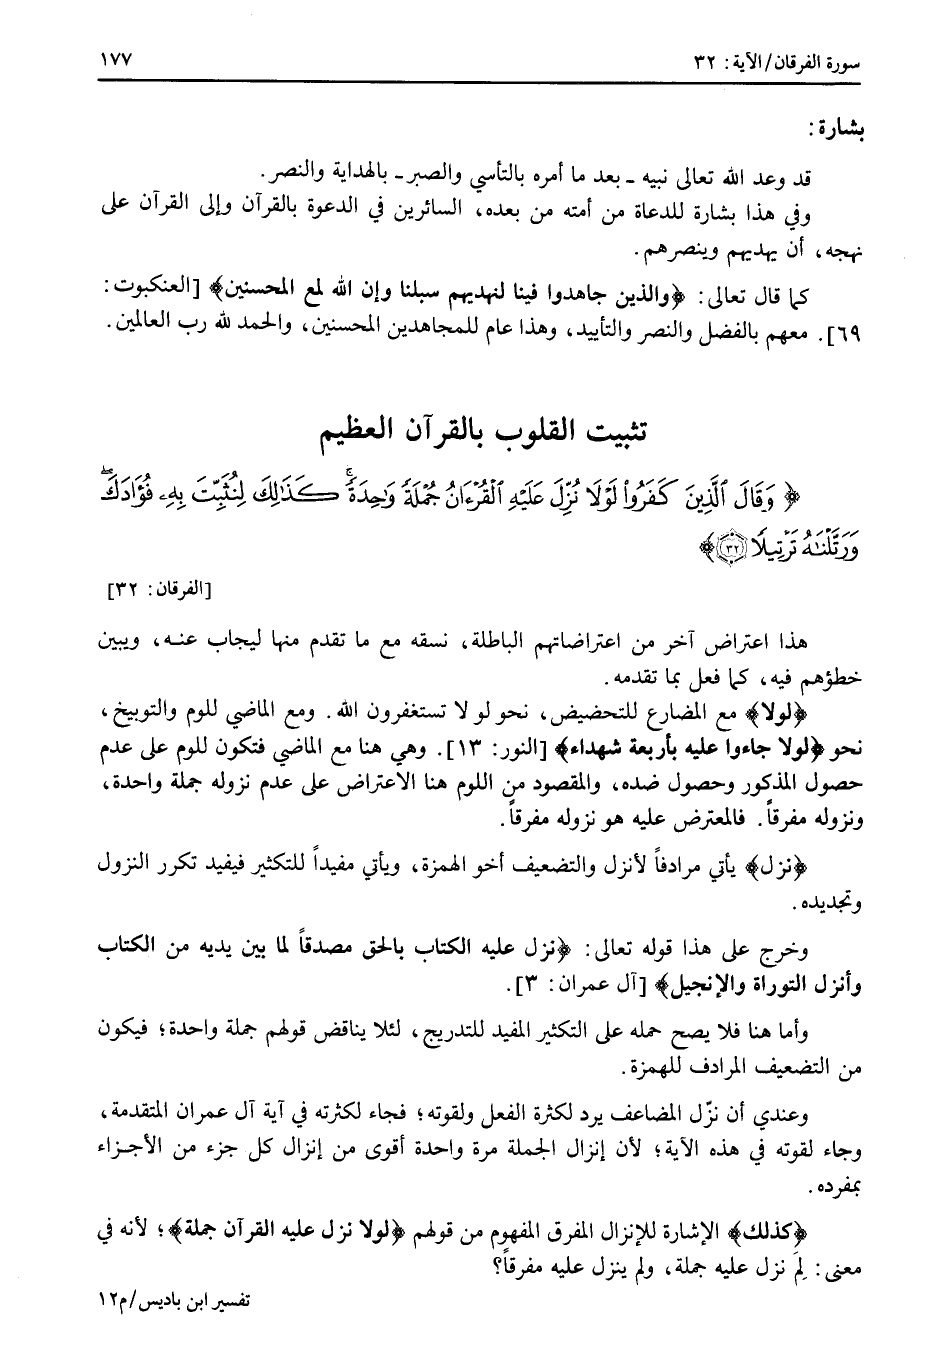 سورة الفرقان/الآية: ٣٢
١٧٧
بشارة:
قد وعد الله تعالى نبيه ـ بعد ما أمره بالتأسي والصبر ـ بالهداية والنصر.
وفي هذا بشارة للدعاة من أمته من بعده، السائرين في الدعوة بالقرآن وإلى القرآن على
نهجه، أن يهديهم وينصرهم.
كما قال تعالى: ﴿والذين جاهدوا فينا لنهديهم سبلنا وإن الله لمع المحسنين﴾ [العنكبوت:
٦٩]. معهم بالفضل والنصر والتأييد، وهذا عام للمجاهدين المحسنين، والحمد لله رب العالمين.
تثبيت القلوب بالقرآن العظيم
﴿ وَقَالَ ٱلَّذِينَ كَفَرُوا۟ لَوْلَا نُزِّلَ عَلَيْهِ ٱلْقُرْءَانُ جُمْلَةً وَٰحِدَةً ۚ كَذَٰلِكَ لِنُثَبِّتَ بِهِۦ فُؤَادَكَ ۖ
وَرَتَّلْنَٰهُ تَرْتِيلًا ٣٢﴾
[الفرقان: ٣٢]
هذا اعتراض آخر من اعتراضاتهم الباطلة، نسقه مع ما تقدم منها ليجاب عنه، ويبين
خطؤهم فيه، كما فعل بما تقدمه.
﴿لولا﴾ مع المضارع للتحضيض، نحو لو لا تستغفرون الله. ومع الماضي للوم والتوبيخ،
نحو ﴿لولا جاءوا عليه بأربعة شهداء﴾ [النور: ١٣]. وهي هنا مع الماضي فتكون للوم على عدم
حصول المذكور وحصول ضده، والمقصود من اللوم هنا الاعتراض على عدم نزوله جملة واحدة،
ونزوله مفرقاً. فالمعترض عليه هو نزوله مفرقاً.
﴿نزل﴾ يأتي مرادفاً لأنزل والتضعيف أخو الهمزة، ويأتي مفيداً للتكثير فيفيد تكرر النزول
وتجديده.
وخرج على هذا قوله تعالى: ﴿نزل عليه الكتاب بالحق مصدقاً لما بين يديه من الكتاب
وأنزل التوراة والإنجيل﴾ [آل عمران: ٣].
وأما هنا فلا يصح حمله على التكثير المفيد للتدريج، لئلا يناقض قولهم جملة واحدة؛ فيكون
من التضعيف المرادف للهمزة.
وعندي أن نزّل المضاعف يرد لكثرة الفعل ولقوته؛ فجاء لكثرته في آية آل عمران المتقدمة،
وجاء لقوته في هذه الآية؛ لأن إنزال الجملة مرة واحدة أقوى من إنزال كل جزء من الأجزاء
بمفرده.
﴿كذلك﴾ الإشارة للإنزال المفرق المفهوم من قولهم ﴿لولا نزل عليه القرآن جملة﴾؛ لأنه في
معنى: لِمَ نزل عليه جملة، ولم ينزل عليه مفرقاً؟
تفسير ابن باديس/م١٢